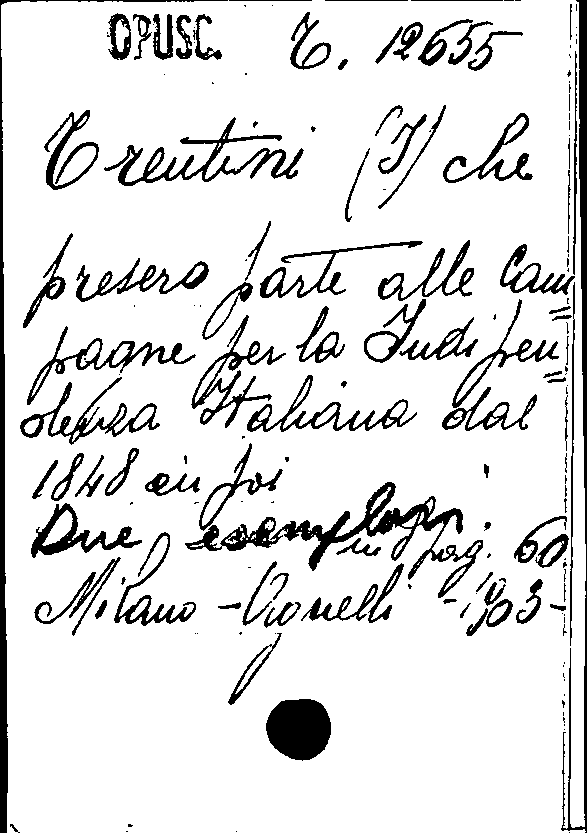 OPUSC. T. 12655
Trentini (I) che
presero parte alle Cam=
pagne per la Indipen=
denza Italiana dal
1848 in poi
Due esemplari.
in pag. 60
Milano - Vignelli - 1903 -